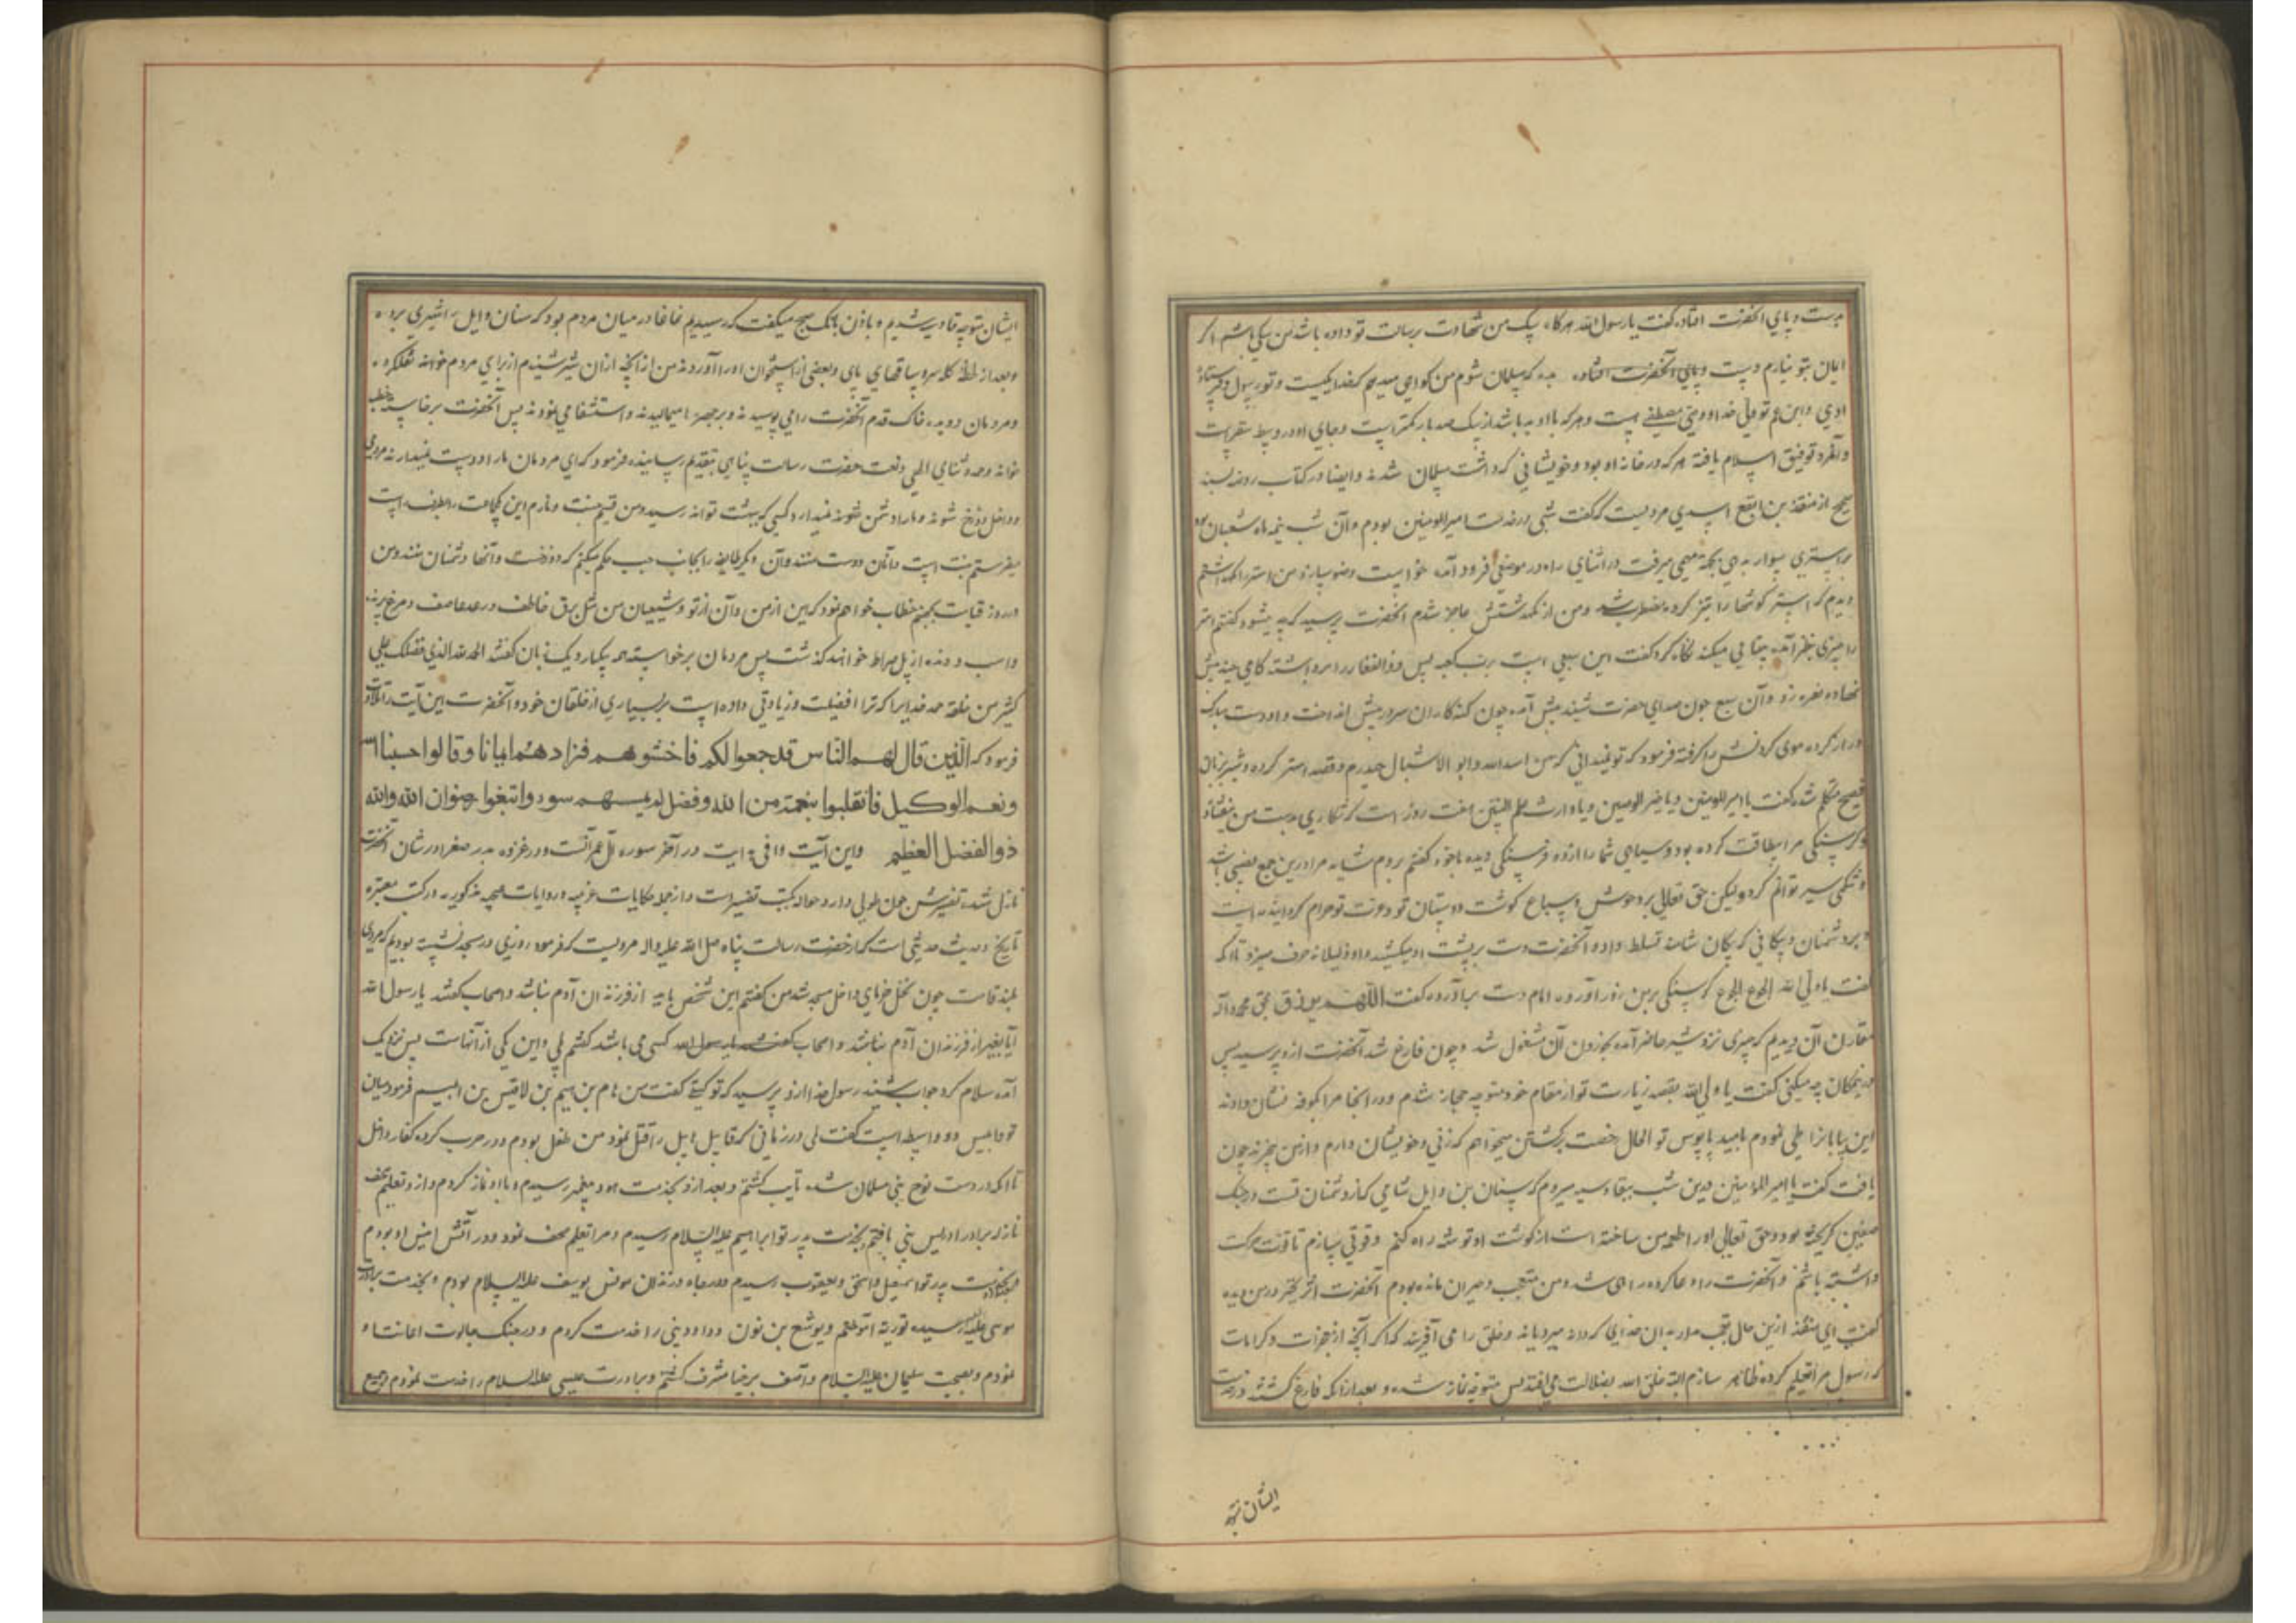 بدست و پای آنحضرت افتاد گفت یا رسول الله هرگاه یک من شهادت برسالت تو داده باشد من کی باشم اگر
ایمان بتو نیارم دست و پای آنحضرت افتاده که مسلمان شوم من گواهی میدهم که خدا یکیست و تو رسول و فرستادهٔ
اویی و ابن عم تو ولی خدا و وصی مصطفی است و هر که با او بد باشد از یک صد بار کمتر است و جای او در وسط سقر است
و آنمرد توفیق اسلام یافته هر که در خانه او بود و خویشانی که داشت مسلمان شدند و ایضا در کتاب روضه بسند
صحیح از منقذ بن ابقع اسدی مرویست که گفت شبی در خدمت امیرالمومنین بودم و آن شب نیمه ماه شعبان بود
براستری سوار بود بجهة مهمی میرفت در اثنای راه در موضعی فرود آمد خواست وضو سازد من استر را نگهداشتم
دیدم که استر گوشها را تیز کرده مضطرب شد و من از نگهداشتنش عاجز شدم آنحضرت پرسید که چه میشود گفتم استر
را چیزی بنظر آمده بیتابی میکند نگاه کرد گفت این سبعی است برب کعبه پس ذوالفقار را برداشته گامی چند پیش
نهاده نعره زد و آن سبع چون صدای حضرت شنید پیش آمده چون گنه کاران سر در پیش انداخت و او دست مبارک
دراز کرده موی گردنش را گرفته فرمود که تو نمیدانی که من اسد الله و ابو الاشبال حیدرم و قصد استر کرده و شیر بزبان
فصیح متکلم شد گفت یا امیرالمومنین و یا خیر الوصیین و یا وارث علم النبیین هفت روز است که شکاری بدست من نیفتاد
و گرسنگی مرا بیطاقت کرده بود و سیاهی شما را از دو فرسنگی دیده با خود گفتم بروم شاید مرا درین جمع نصیبی باشد
و شکمی سیر توانم کرد ولیکن حق تعالی بر وحوش و سباع گوشت دوستان تو و عترت تو حرام گردانیده است
و بر دشمنان تسلط داده و آنحضرت دست بر پشت او میکشید و او ذلیلانه حرف میزد تا آنکه
گفت یا ولی الله الجوع الجوع گرسنگی بر من زور آورده امام دست برآورده گفت اللهم برزق بحق محمد و آله
مقارن آن دیدیم که چیزی نزد شیر حاضر آمده بخوردن آن مشغول شد و چون فارغ شد آنحضرت ازو پرسید پس
درینمکان چه میکنی گفت یا ولی الله بقصد زیارت تو از مقام خود متوجه حجاز شدم و در آنجا مرا بکوفه نشان دادند
این بیابانرا طی نمودم بامید پابوس تو الحال رخصت برگشتن میخواهم که زنی و خویشان دارم و از من خبر ندارند چون
یافت گفت یا امیرالمومنین من درین شب بقادسیه میروم که سنان بن وایل شامی که از دشمنان تست و در جنگ
صفین گریخته بود و حق تعالی او را طعمه من ساخته است از گوشت او توشه راه کنم و قوتی سازم تا قوت حرکت
داشته باشم و آنحضرت را دعا کرده راهی شد و من متعجب و حیران مانده بودم آنحضرت اثر تحیر در من دیده
گفت ای منقذ ازین حال تعجب مدار بآن خدایی که دانه میرویاند و خلق را می آفریند که اگر آنچه از معجزات و کرامات
که رسول مرا تعلیم کرده ظاهر سازم البته خلق الله بضلالت می افتند پس متوجه نماز شده و بعد از آنکه فارغ گشتند در خدمت
ایشان متوجه
ایشان متوجه قادسیه شدیم و باذن بانگ صبح میگفت که رسیدیم غاغا در میان مردم بود که سنان وایل را شیری برده
و بعد از لحظهٔ کله سر و ساقهای پای و بعضی از استخوان او را آوردند من از آنچه از آن شیر شنیدم از برای مردم خوانده نقل کرده
و مردمان دویده خاک قدم آنحضرت را می بوسیدند و بر چهره ها میمالیدند و استشفا می نمودند پس آنحضرت برخاسته خطبه
خوانده و حمد و ثنای الهی و نعت حضرت رسالت پناهی بتقدیم رسانیده فرمود که ای مردمان ما را دوست نمیدارند مردمی
و داخل دوزخ شوند و ما را دشمن نمیدارد کسی که ببهشت تواند رسید و من قسیم جنت و نارم این یکجماعت را بطرف راست
میفرستم جنت است و آنان دوست منند و آن دیگر طایفه را بجانب چپ حکم میکنم که دوزخست و آنها دشمنان منند و من
در روز قیامت بجهنم خطاب خواهم نمود که این از من و آن از تو و شیعیان من مثل برق خاطف و رعد عاصف و مرغ پرنده
و اسب دونده از پل صراط خواهند گذشت پس مردمان برخواسته همه یکبار و یک زبان گفتند الحمد لله الذی فضلک علی
کثیر من خلقه حمد خدایرا که ترا افضلیت و زیادتی داده است بر بسیاری از خلقان خود و آنحضرت این آیت را تلاوت
فرمود که الذین قال لهم الناس قد جمعوا لکم فاخشوهم فزادهم ایمانا وقالوا حسبنا الله
ونعم الوکیل فانقلبوا بنعمة من الله وفضل لم یمسسهم سوء واتبعوا رضوان الله والله
ذو الفضل العظیم و این آیت وافی هدایت در آخر سوره آل عمرانست و در غزوه بدر صغرا در شان آنحضرت
نازل شده تفسیرش چون طولی دارد حواله بکتب تفسیر است و از جمله حکایات غریبه و روایات عجیبه مذکوره در کتب معتبره
تاریخ و حدیث حدیثی است که از حضرت رسالت پناه صلی الله علیه و اله مرویست که فرمود روزی در مسجد نشسته بودیم که مردی
بلند قامت چون نخل خرمای داخل مسجد شد من گفتم این شخص باید از فرزندان آدم نباشد و اصحاب گفتند یا رسول الله
آیا بغیر از فرزندان آدم نباشد و اصحاب گفتند یا رسول الله کسی می باشد گفتم بلی و این یکی از آنهاست پس نزدیک
آمده سلام کرد جواب شنید رسول خدا ازو پرسید که تو کیستی گفت من هام بن هیم بن لاقیس بن ابلیسم فرمود میان
تو و ابلیس دو واسطه است گفت بلی در زمانی که قابیل هابیل را قتل نمود من طفل بودم و در حرب کرده کفار داخل
تا آنکه در دست نوح نبی مسلمان شده تایب گشتم و بعد ازو بخدمت هود پیغمبر رسیدم و با او نماز کردم و ازو تعلیم صحف
نازله برادر ادریس نبی یافتم و بخدمت پدر تو ابراهیم علیه السلام رسیدم و مرا تعلیم صحف نمود و در آتش انیس او بودم
و بخدمت پدر تو اسمعیل و اسحق و یعقوب رسیدم و در چاه و زندان مونس یوسف علیه السلام بودم و بخدمت برادرت
موسی علیه السلام رسیده توریة آموختم و یوشع بن نون و داود نبی را خدمت کردم و در جنگ جالوت اعانتها
نمودم و بصحبت سلیمان علیه السلام و آصف برخیا مشرف گشتم و برادرت عیسی علیه السلام را خدمت نمودم و جمیع